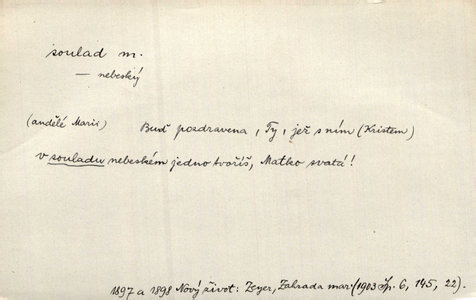 soulad m.
— nebeský
(andělé Marii) Buď pozdravena, Ty, jež s ním (Kristem)
v souladu nebeském jedno tvoříš, Matko svatá!
1897 a 1898 Nový život: Zeyer, Zahrada mar. (1903 Sp. 6, 145, 22).